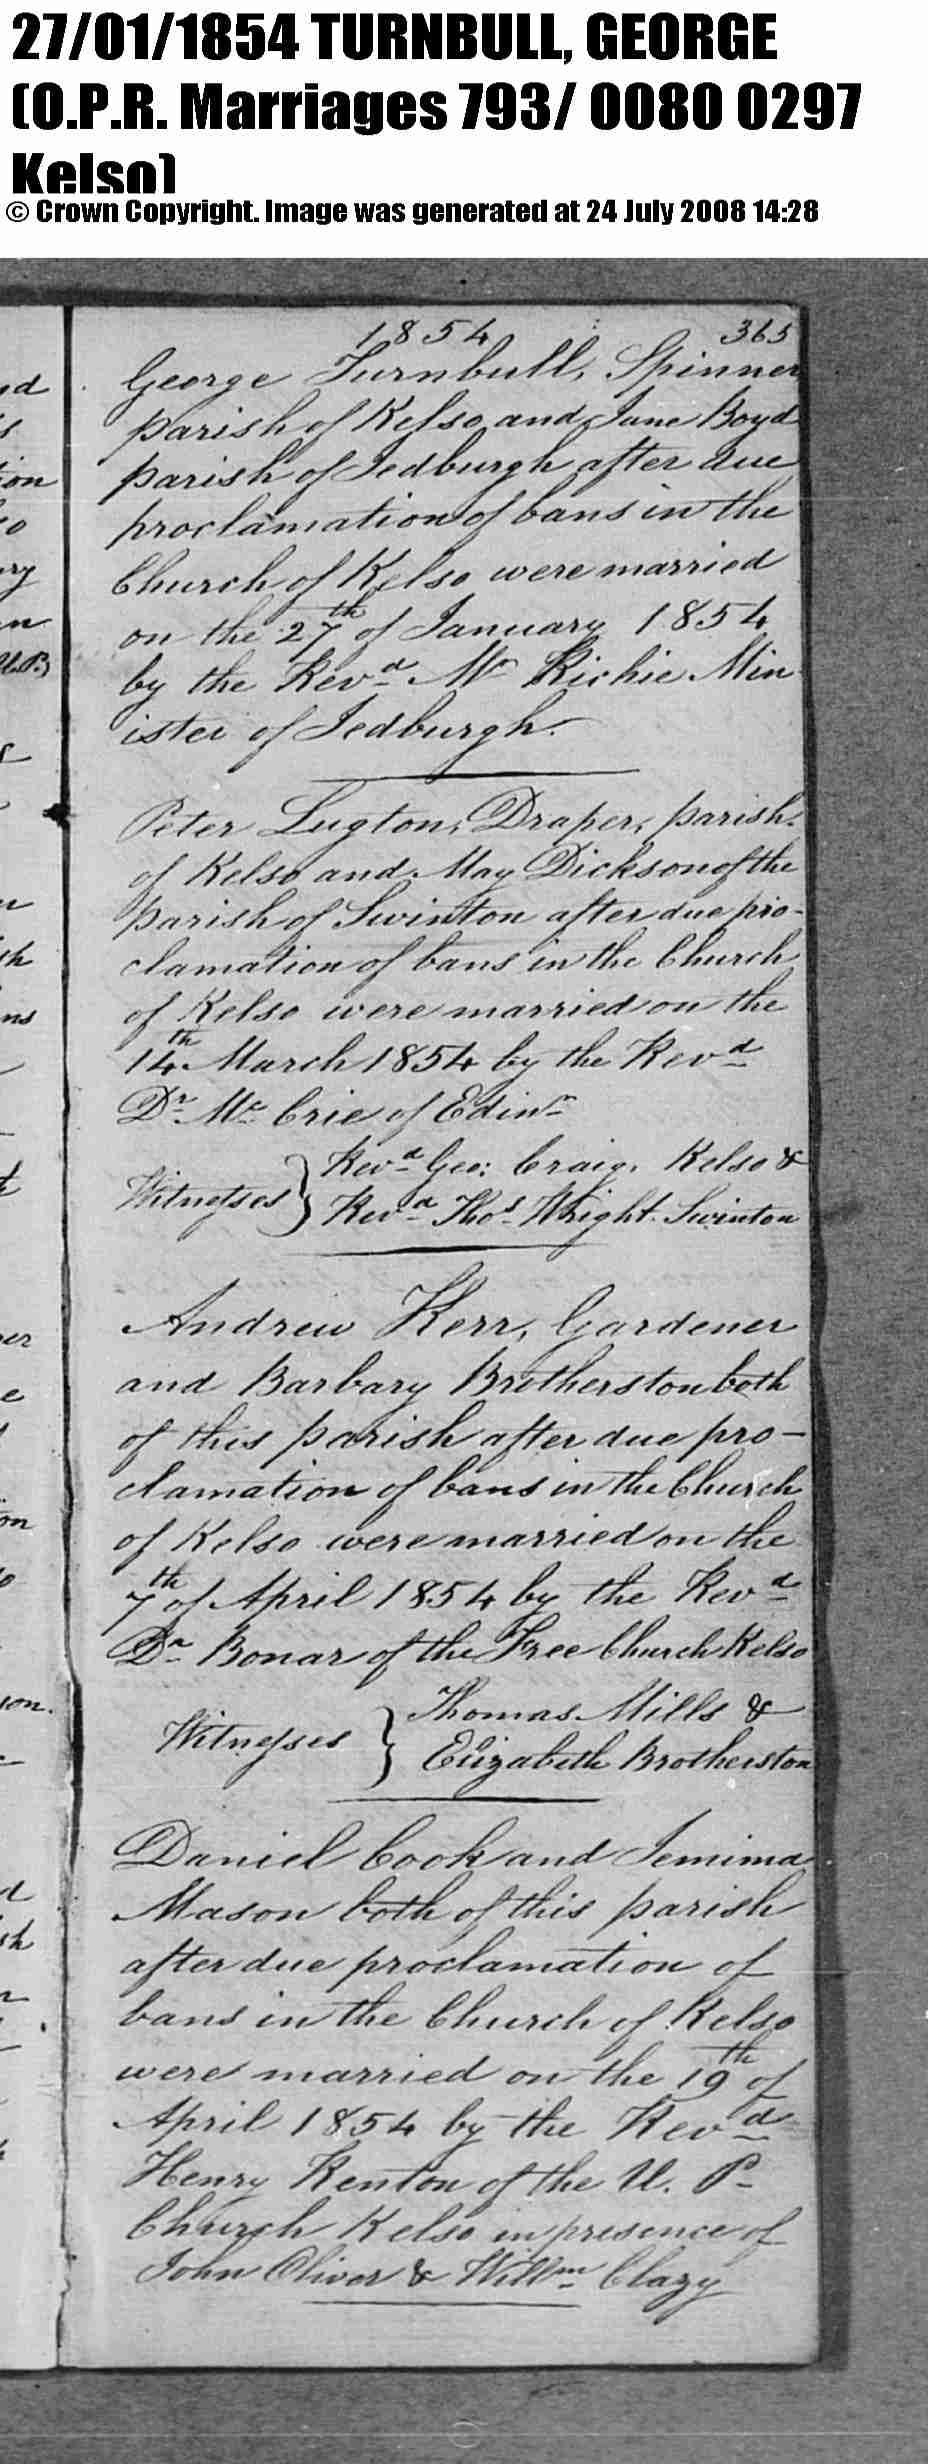 27/01/1854 TURNBULL, GEORGE
(O.P.R. Marriages 793/ 0080 0297
Kelso)
© Crown Copyright. Image was generated at 24 July 2008 14:28
1854 365
George Turnbull, Spinner
parish of Kelso and Jane Boyd
parish of Jedburgh after due
proclamation of bans in the
Church of Kelso were married
on the 27th of January 1854
by the Revd Mr Richie Min
ister of Jedburgh.
Peter Lugton, Draper, parish
of Kelso and May Dickson of the
parish of Swinton after due pro-
clamation of bans in the Church
of Kelso were married on the
14th March 1854 by the Revd
Dr Mc Crie of Edinr
Witnesses } Revd Geo: Craig, Kelso &
Revd Thos Wright. Swinton
Andrew Kerr, Gardener
and Barbary Brotherston both
of this parish after due pro-
clamation of bans in the Church
of Kelso were married on the
7th of April 1854 by the Revd
Dr Bonar of the Free Church Kelso
Witnesses } Thomas Mills &
Elizabeth Brotherston
Daniel Cook and Jemima
Mason both of this parish
after due proclamation of
bans in the Church of Kelso
were married on the 19th of
April 1854 by the Revd
Henry Renton of the U. P.
Church Kelso in presence of
John Oliver & Willm Clazy